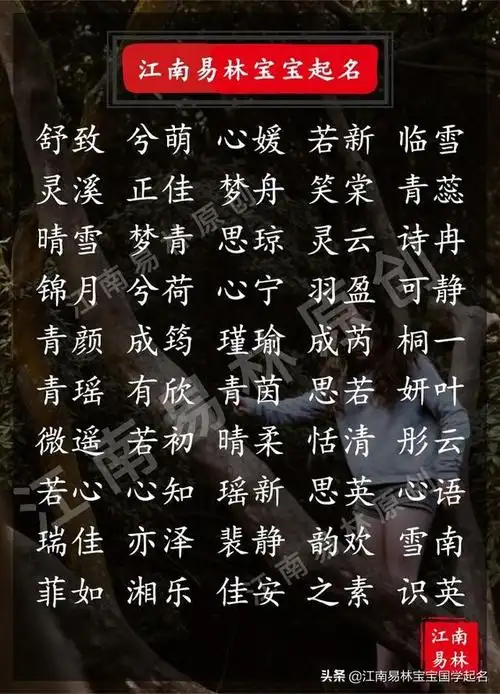 江南易林宝宝起名
舒致 兮萌 心媛 若新 临雪
灵溪 正佳 梦舟 笑棠 青蕊
晴雪 梦青 思琼 灵云 诗冉
锦月 兮荷 心宁 羽盈 可静
青颜 成筠 瑾瑜 成芮 桐一
青瑶 有欣 青茵 思若 妍叶
微遥 若初 晴柔 恬清 彤云
若心 心知 瑶新 思英 心语
瑞佳 亦泽 裴静 韵欢 雪南
菲如 湘乐 佳安 之素 识英
江南易林原创
江南易林原创
江南易林原创
江南
易林
头条 @江南易林宝宝国学起名